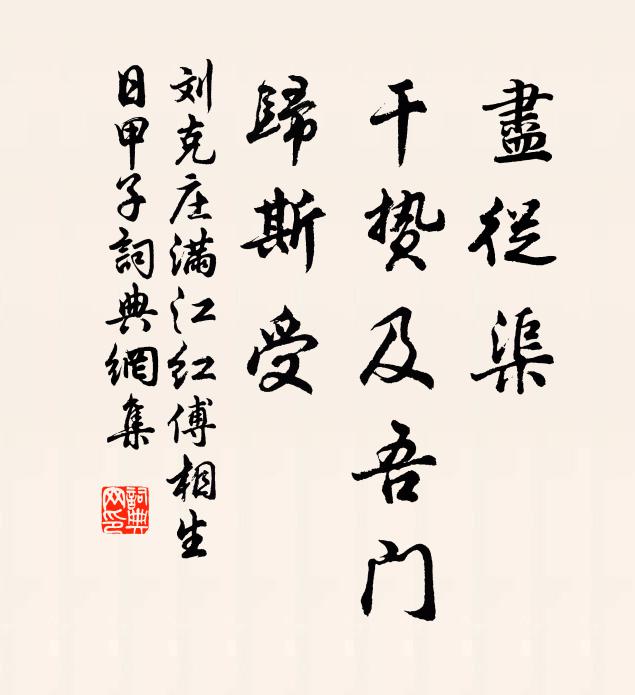 盡從渠
干贄及吾門
歸斯受
刘克庄满江红傅相生
日甲子詞典網集
詞典网印